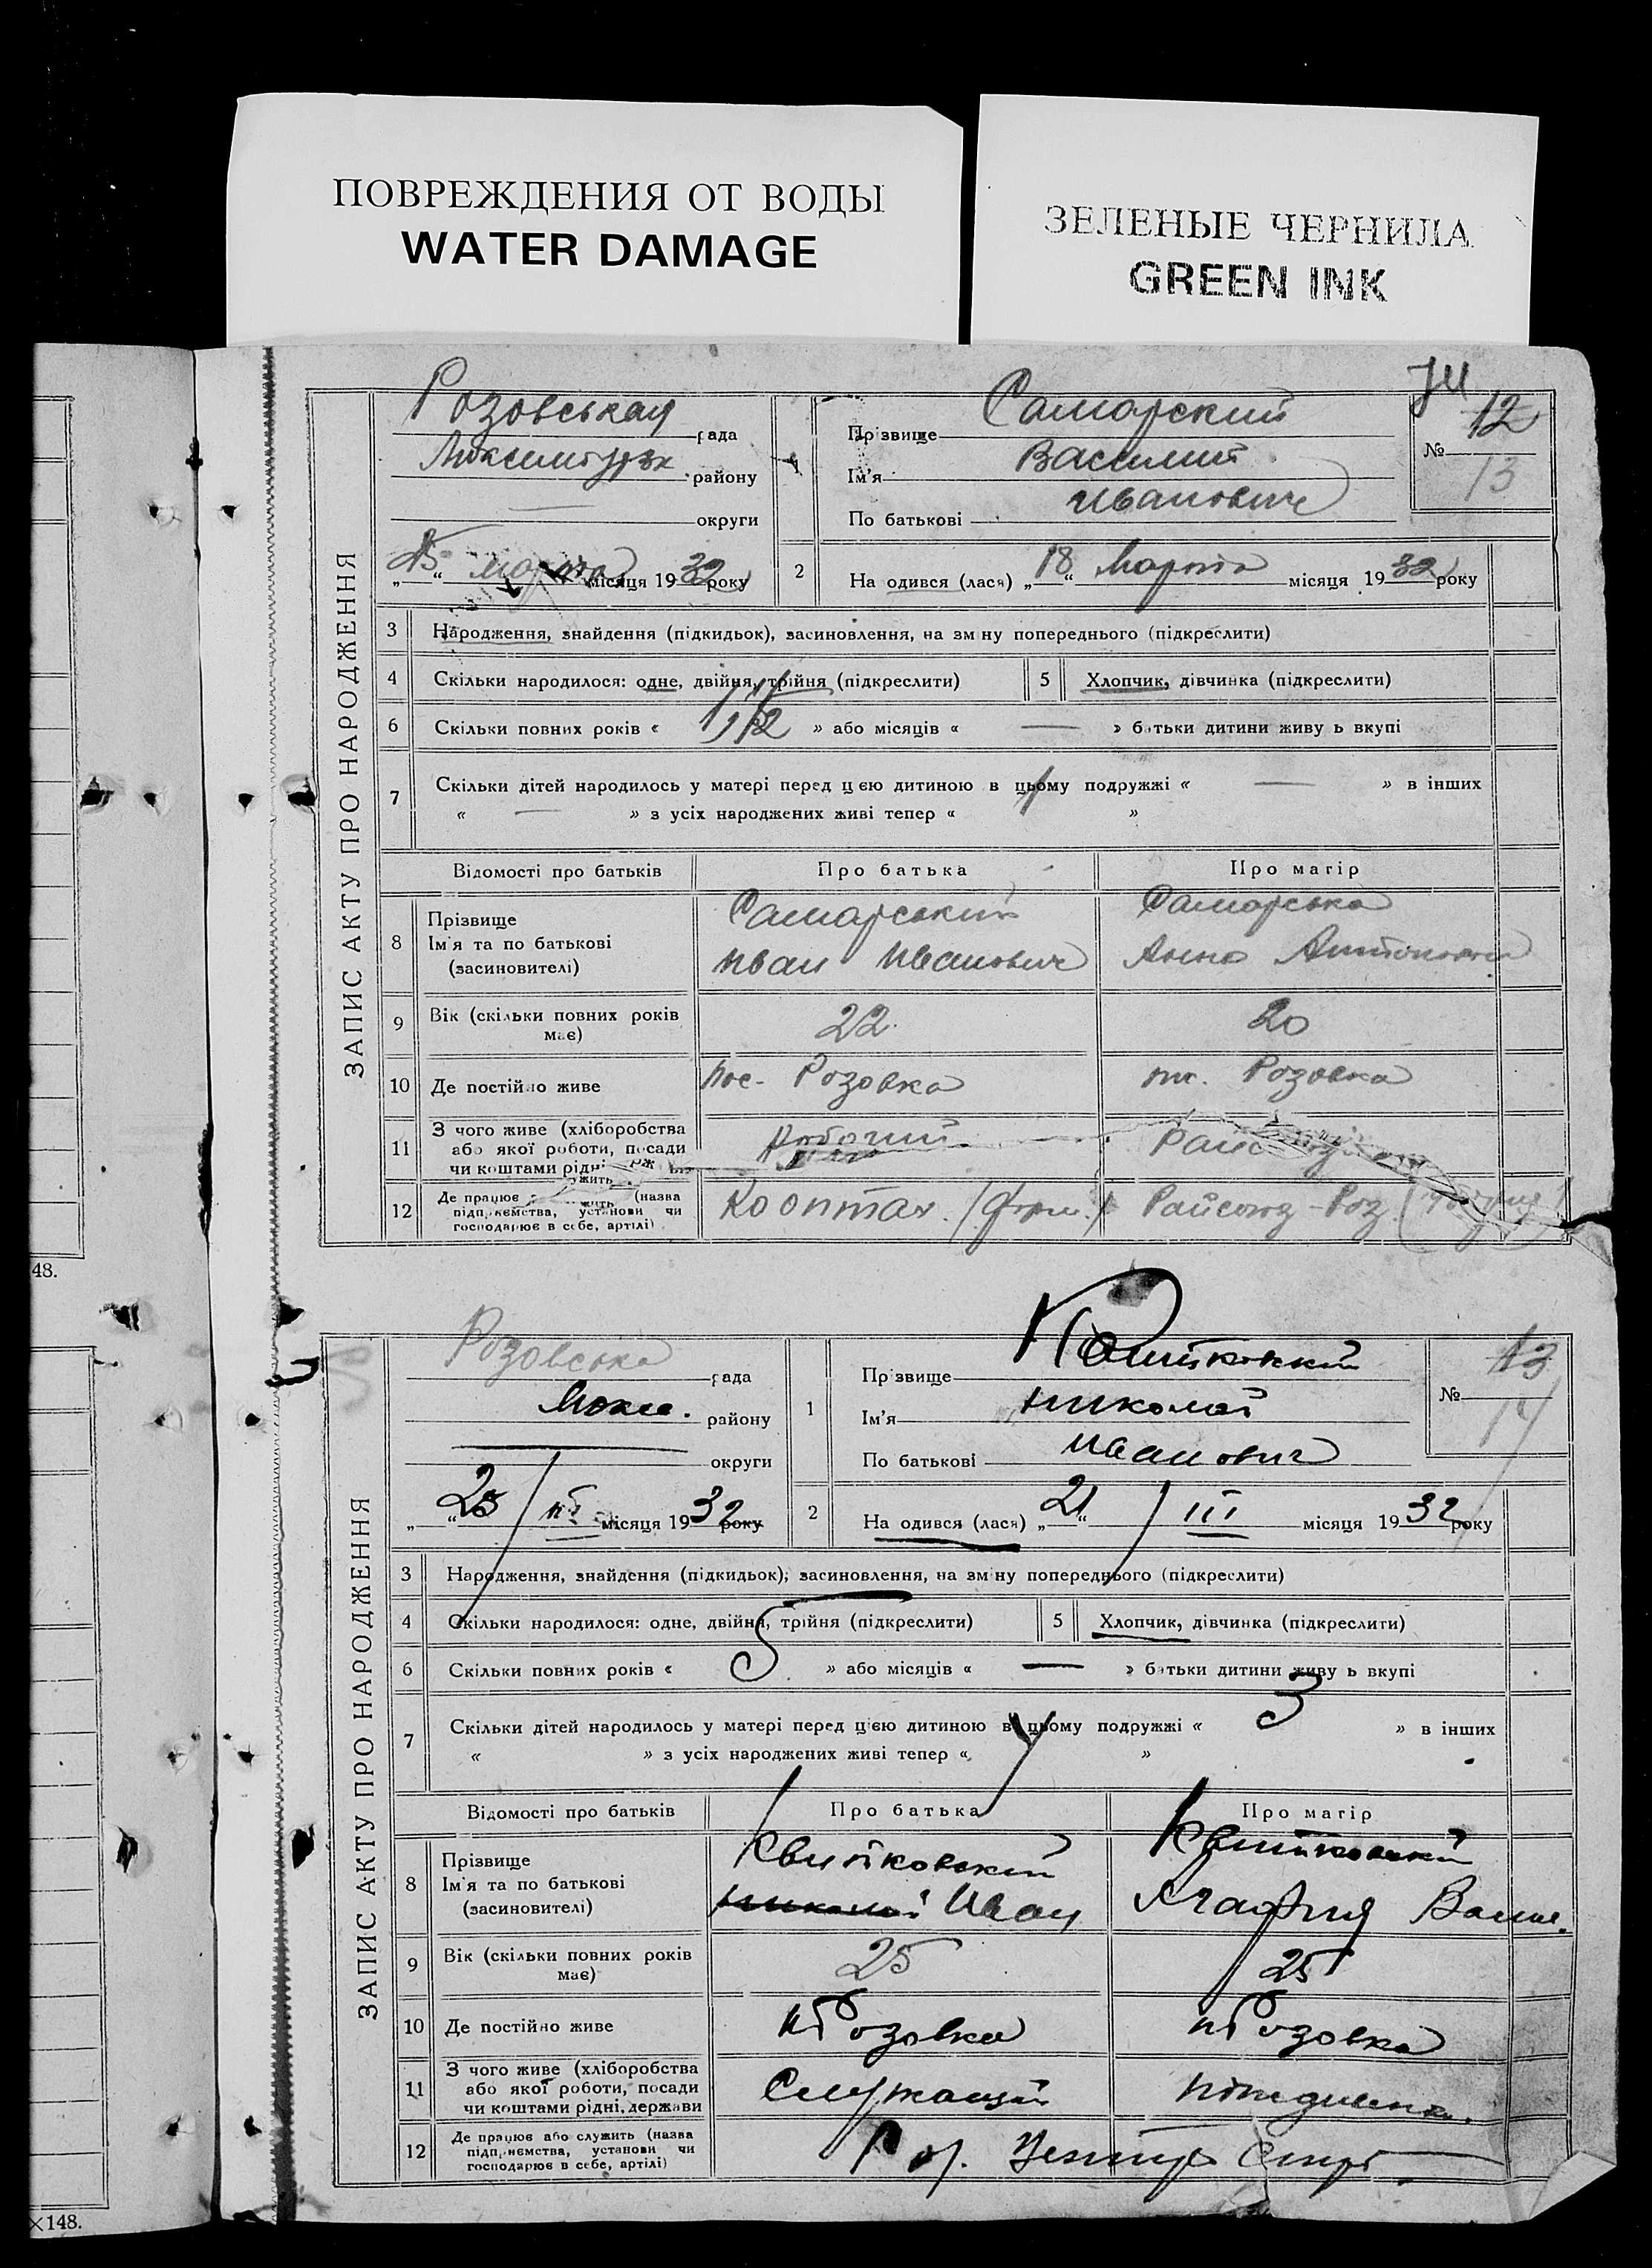 ПОВРЕЖДЕНИЯ ОТ ВОДЫ
WATER DAMAGE
ЗЕЛЕНЫЕ ЧЕРНИЛА
GREEN INK
ЗАПИС АКТУ ПРО НАРОДЖЕННЯ
Розовськая рада
району
округи
15 марта місяця 1932 року
Прізвище Самарский
Ім'я Василий
По батькові Иванович
№ 12
13
2 На одився (лася) „18“ Марта місяця 1932 року
3 Народження, знайдення (підкидьок), засиновлення, на зміну попереднього (підкреслити)
4 Скільки народилося: одне, двійня, трійня (підкреслити) 5 Хлопчик, дівчинка (підкреслити)
6 Скільки повних років « 1 1/2 » або місяців « — » батьки дитини живу ь вкупі
7 Скільки дітей народилось у матері перед цією дитиною в цьому подружжі « — » в інших
« — » з усіх народжених живі тепер « »
Відомості про батьків Про батька Про матір
8 Прізвище Самарський Самарська
Ім'я та по батькові Иван Иванович Анна
(засиновителі)
9 Вік (скільки повних років має) 22 20
10 Де постійно живе пос. Розовка Розовка
11 З чого живе (хліборобства
або якої роботи, посади
чи коштами рідні
Рабочий
12 Де працює (назва
підприємства, установи чи
господарює в себе, артілі)
Райсоюз-Роз.
48.
ЗАПИС АКТУ ПРО НАРОДЖЕННЯ
Розовська рада
Люкс. району
округи
„25“ місяця 1932 року
1 Прізвище
Ім'я Николай
По батькові Иванович
№ 13
14
2 На одився (лася) „21“ / III місяця 1932 року
3 Народження, знайдення (підкидьок), засиновлення, на зміну попереднього (підкреслити)
4 Скільки народилося: одне, двійня, трійня (підкреслити) 5 Хлопчик, дівчинка (підкреслити)
6 Скільки повних років « 5 » або місяців « — » батьки дитини живу ь вкупі
7 Скільки дітей народилось у матері перед цією дитиною в цьому подружжі « 3 » в інших
« » з усіх народжених живі тепер « »
Відомості про батьків Про батька Про матір
8 Прізвище Квитковский Квитковский
Ім'я та по батькові Николай Иван Агафия
(засиновителі)
9 Вік (скільки повних років має) 25 25
10 Де постійно живе Розовка Розовка
11 З чого живе (хліборобства
або якої роботи, посади
чи коштами рідні, держави
Служащий
12 Де працює або служить (назва
підприємства, установи чи
господарює в себе, артілі)
×148.